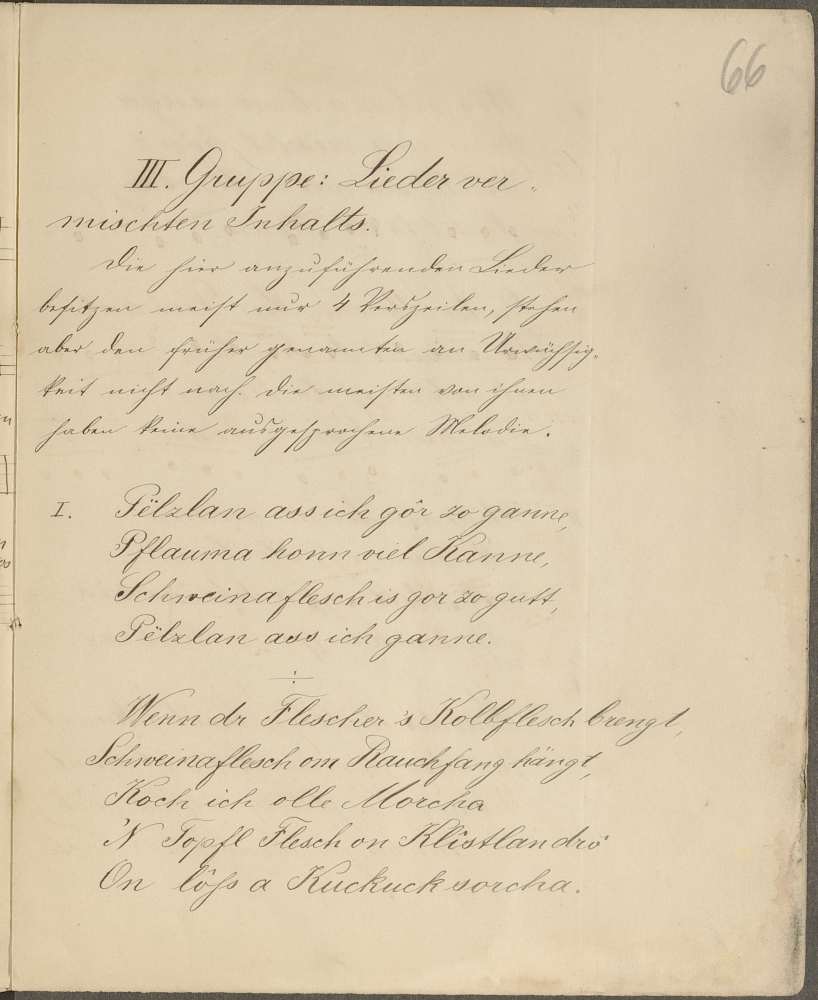 66
III. Gruppe: Lieder ver-
mischten Inhalts.
Die hier anzuführenden Lieder
besitzen meist nur 4 Verszeilen, stehen
aber den früher genannten an Urwüchsig-
keit nicht nach. Die meisten von ihnen
haben keine ausgesprochene Melodie.
I. Pëlzlan ass ich gôr zo ganne,
Pflauma honn viel Kanne,
Schweinaflesch is gor zo gutt,
Pëlzlan ass ich ganne.
Wenn dr Flescher 's Kolbflesch brengt,
Schweinaflesch om Rauchfang hängt,
Koch ich olle Morcha
'N Topfl Flesch on Klîstlan drô
On lôss a Kuckuck sorcha.